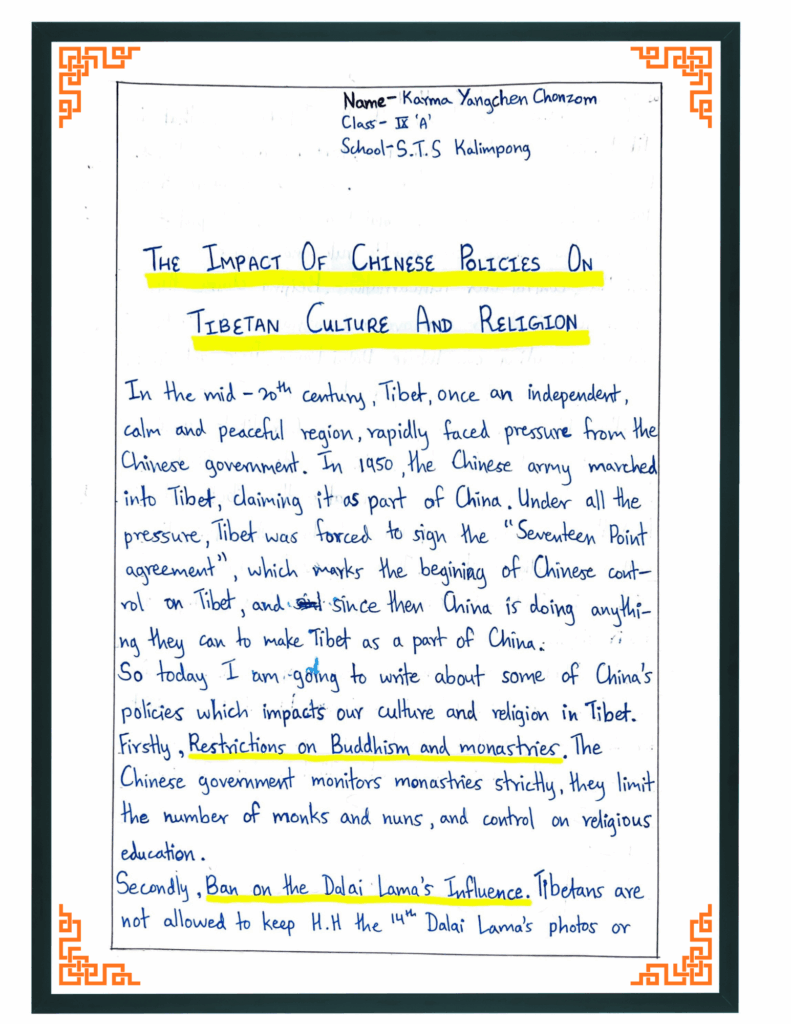 Name- Karma Yangchen Chonzom
Class- IX 'A'
School-S.T.S Kalimpong
THE IMPACT OF CHINESE POLICIES ON
TIBETAN CULTURE AND RELIGION
In the mid-20th century, Tibet, once an independent,
calm and peaceful region, rapidly faced pressure from the
Chinese government. In 1950, the Chinese army marched
into Tibet, claiming it as part of China. Under all the
pressure, Tibet was forced to sign the "Seventeen Point
agreement", which marks the begining of Chinese cont-
rol on Tibet, and since then China is doing anythi-
ng they can to make Tibet as a part of China.
So today I am going to write about some of China's
policies which impacts our culture and religion in Tibet.
Firstly, Restrictions on Buddhism and monastries. The
Chinese government monitors monastries strictly, they limit
the number of monks and nuns, and control on religious
education.
Secondly, Ban on the Dalai Lama's Influence. Tibetans are
not allowed to keep H.H the 14th Dalai Lama's photos or